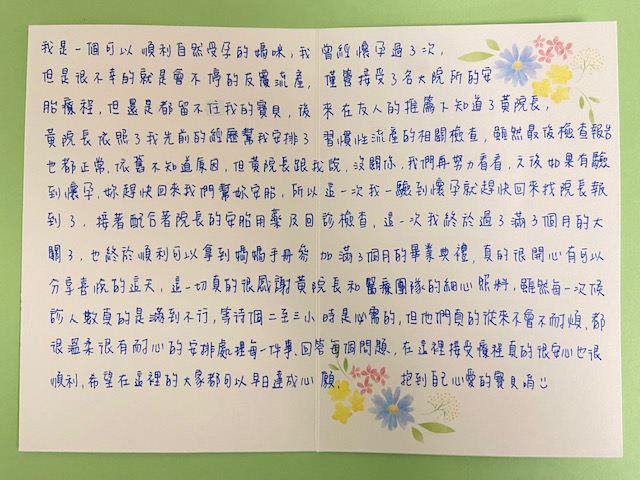 我是一個可以順利自然受孕的媽咪,我曾經懷孕過3次,
但是很不幸的就是會不停的反覆流產,僅管接受了各大院所的安
胎療程,但還是都留不住我的寶貝,後來在友人的推薦下知道了黃院長,
黃院長依照了我先前的經歷幫我安排了習慣性流產的相關檢查,雖然最後檢查報告
也都正常,依舊不知道原因,但黃院長跟我說,沒關係,我們再努力看看,之後如果有驗
到懷孕,妳趕快回來我們幫妳安胎,所以這一次我一驗到懷孕就趕快回來找院長報
到了,接著配合著院長的安胎用藥及回診檢查,這一次我終於過了滿3個月的大
關了,也終於順利可以拿到媽媽手冊參加滿3個月的畢業典禮,真的很開心有可以
分享喜悅的這天,這一切真的很感謝黃院長和醫療團隊的細心照料,雖然每一次候
診人數真的是滿到不行,等待個二至三小時是必需的,但他們真的從來不會不耐煩,都
很溫柔很有耐心的安排處理每一件事,回答每個問題,在這裡接受療程真的很安心也很
順利,希望在這裡的大家都可以早日達成心願,抱到自己心愛的寶貝唷:)